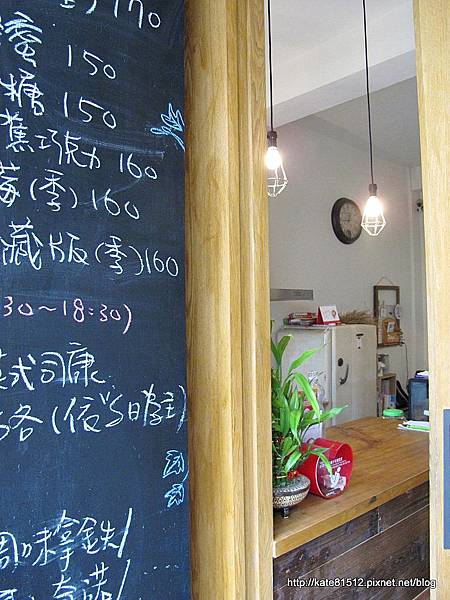 170
蜜 150
糖 150
蕉巧克力 160
莓(季)160
藏版(季)160
30～18:30)
英式司康
(依當日為主)
風味拿鐵/
http://kate81512.pixnet.net/blog